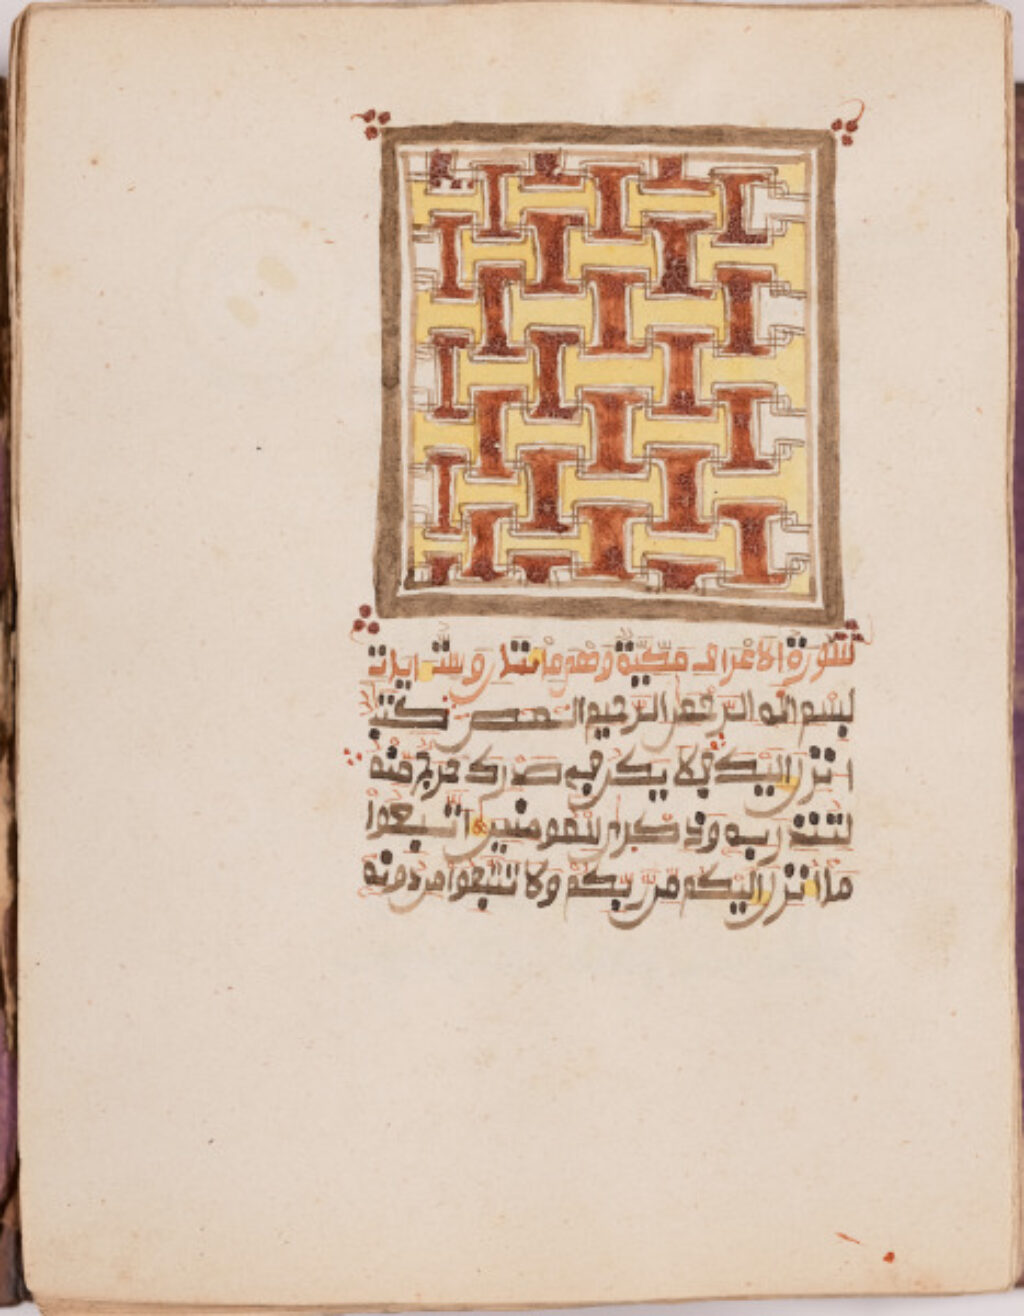 سورة الاعراف مكية وهو مائتان وست ايات
بسم الله الرحمن الرحيم المص كتب
انزل اليك فلا يكن في صدرك حرج منه
لتنذر به وذكرى للمومنين اتبعوا
ما انزل اليكم من ربكم ولا تتبعوا من دونه